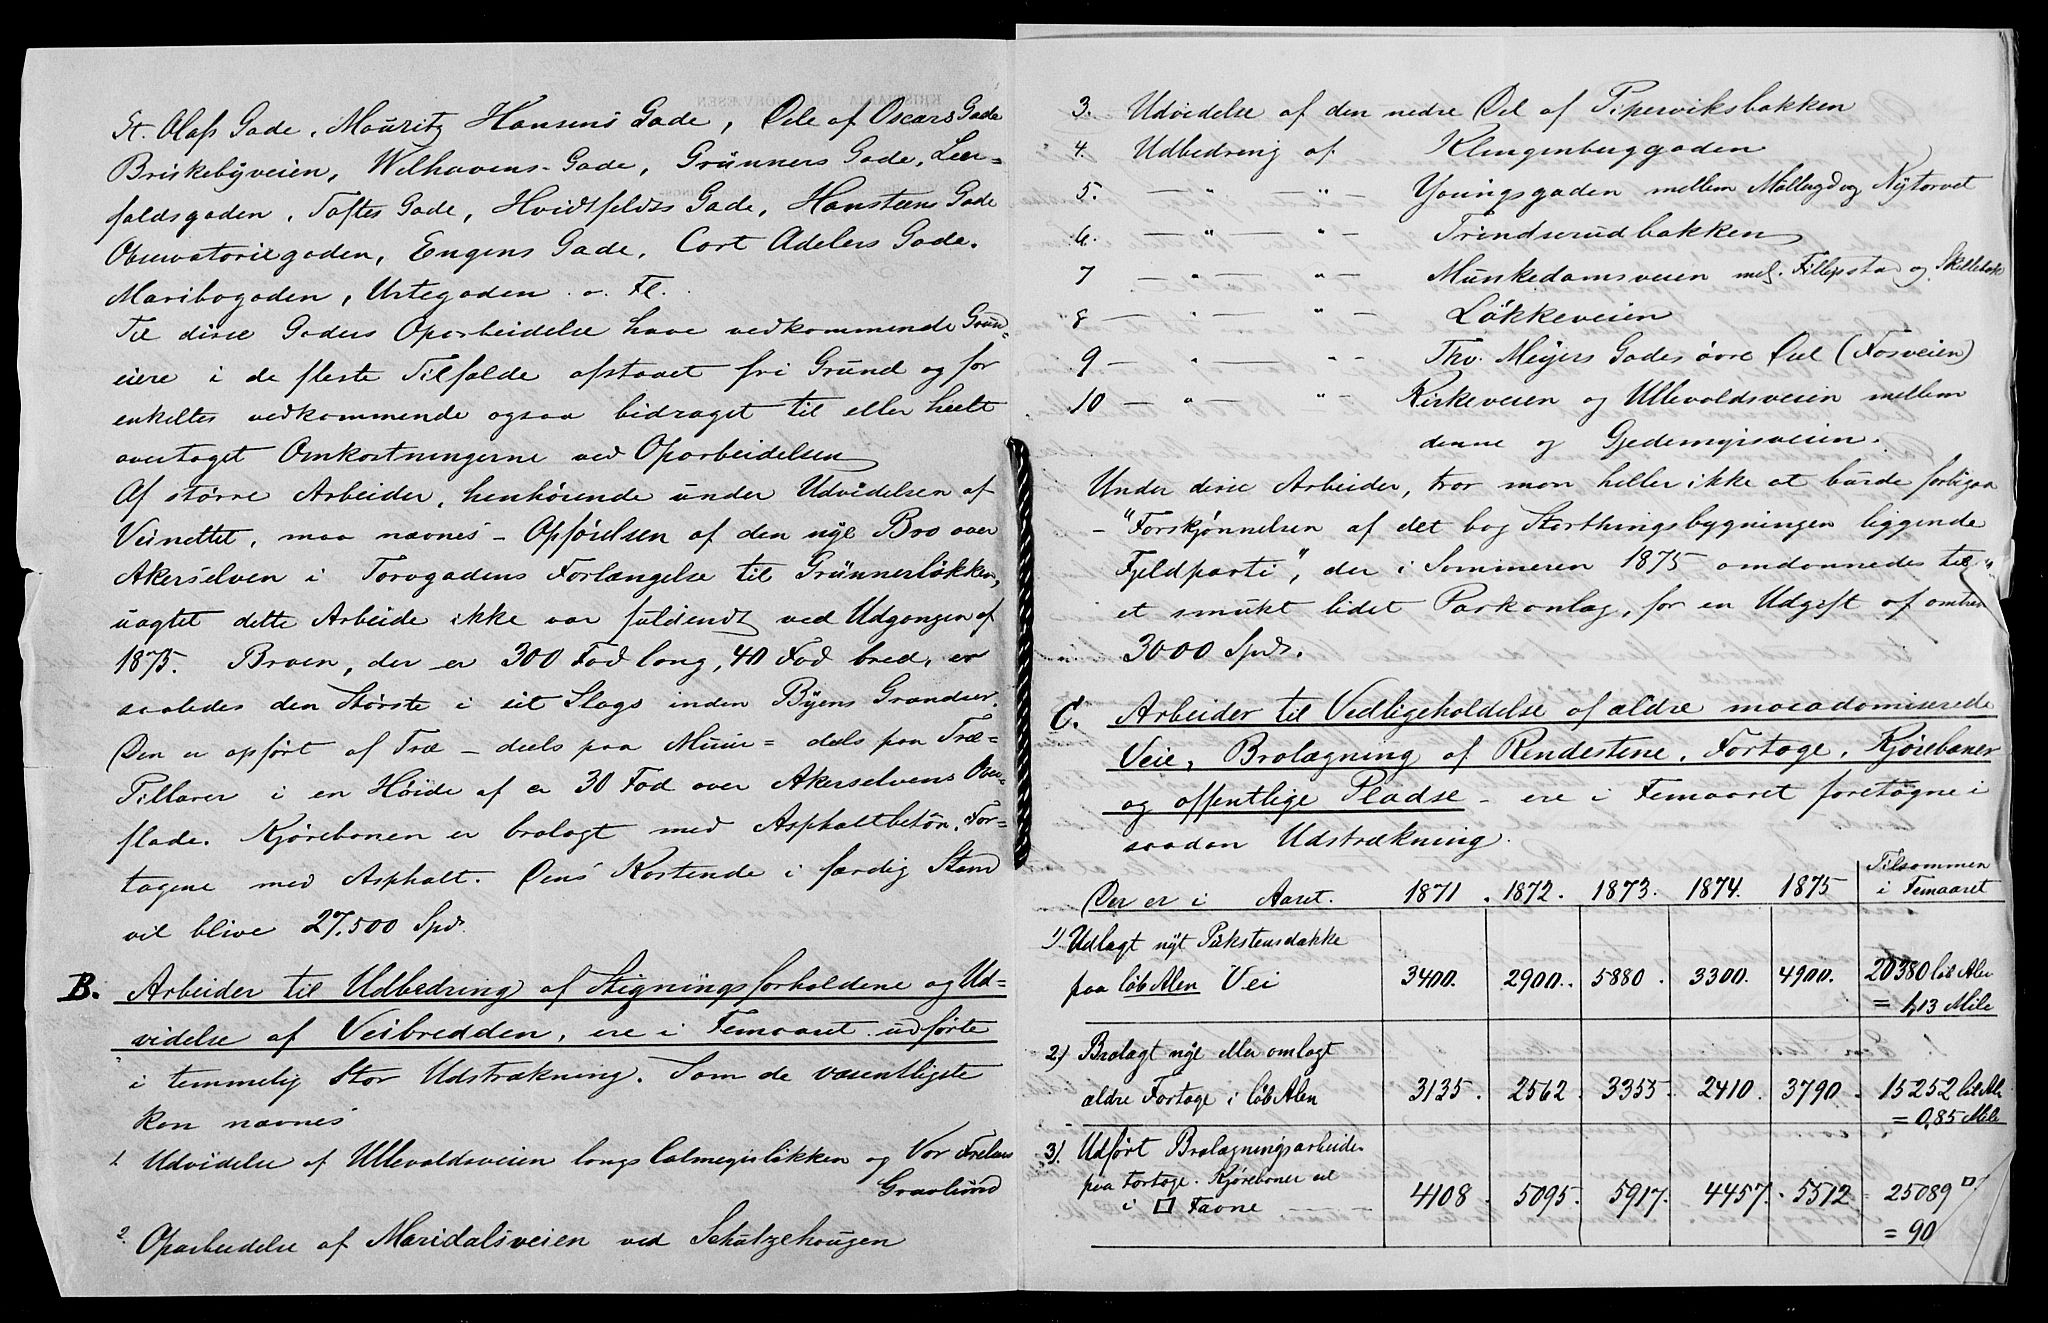 St. Olafs Gade, Mauritz Hansens Gade, Dele af Oscars Gade
Briskebyveien, Welhavens Gade, Grünners Gade, Leer=
faldsgaden, Toftes Gade, Hvidtfeldts Gade, Hansteens Gade
Observatoriegaden, Eugens Gade, Cort Adelers Gade.
Maribogaden, Urtegaden o. Fl.
Til disse Gaders Oparbeidelse have vedkommende Grund=
eiere i de fleste Tilfælde afstaaet fri Grund og for
enkeltes vedkommende ogsaa bidraget til eller heelt
overtaget Omkostningerne ved Oparbeidelsen
Af större Arbeider, henhörende under Udvidelsen af
Veinettet, maa nævnes – Opförelsen af den nye Bro over
Akerselven i Torvgadens Forlængelse til Grünnerlökken,
uagtet dette Arbeide ikke var fuldendt ved Udgangen af
1875. Broen, der er 300 Fod lang, 40 Fod bred, er
saaledes den Störste i sit Slags inden Byens Grændser.
Den er opfört af Træ – deels paa Muur= deels paa Træ=
Pillarer i en Höide af ca 30 Fod over Akerselvens Over=
flade. Kjörebanen er brolagt med Asphaltbetön, For=
tagene med Asphalt. Dens Kostende i færdig Stand
vil blive 27,500 Spd.
B. Arbeider til Udbedring af Stigningsforholdene og Ud=
videlse af Veibredden, ere i Femaaret udförte
i temmelig Stor Udstrækning. Som de væsentligste
kan nævnes
1. Udvidelse af Ullevoldsveien langs Colmegislökken og Vor Frelsers
Gravlund
2. Oparbeidelse af Maridalsveien ved Schultzehougen
3. Udvidelse af den nedre Del af Piperviksbakken
4. Udbedring af Klingenberggaden
5. — " — — " — Youngsgaden mellem Möllergd og Nytorvet
6. — " — — " — Trindserudbakken
7 — " — — " — Munkedamsveien mel. Fillipstad og Skillebæk
8 — " — — " — Lökkeveien
9 — " — — " — Thv. Meyers Gades övre Deel (Fosveien)
10 — " — — " — Kirkeveien og Ullevoldsveien mellem
denne og Gjedemyrsveien.
Under disse Arbeider, tror man heller ikke at burde forbigaa
– "Forskjønnelsen af det bag Storthingsbygningen liggende
Fjeldparti", der i Sommeren 1875 omdannedes til
et smukt lidet Parkanlæg, for en Udgift af omtrent
3000 Spd.
C. Arbeider til Vedligeholdelse af ældre macadomiserede
Veie, Brolægning af Rendestene, Fortoge, Kjørebaner
og offentlige Pladse – ere i Femaaret foretagne i
saadan Udstrækning.
Der er i Aaret. 1871. 1872. 1873. 1874. 1875 Tilsammen
i Femaaret
1) Udlagt nyt Pukstensdække
paa löb Alen Vei 3400. 2900. 5880. 3300. 4900. 20380 löb Alen
= 1,13 Mile
2) Brolagt nye eller omlagt
ældre Fortoge i löb Alen 3135. 2562 3355 2410. 3790. 15252 löb Aln
= 0,85 Mile
3) Udfört Brolægningsarbeider
paa Fortoge. Kjørebaner etc
i □ Favne 4108 5095. 5917. 4457. 5512 25089 □
= 90